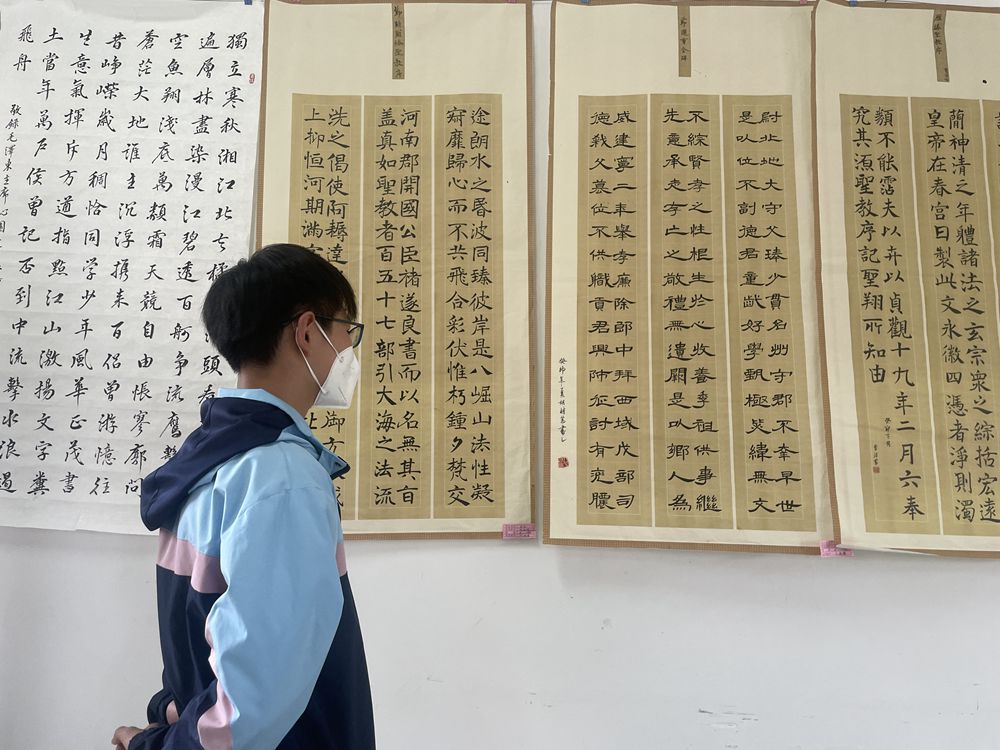 雁塔聖教序
蕳神清之年體諸法之玄宗衆之綜括宏遠
皇帝在春宮日製此文永徽四憑者淨則濁
類不能霑夫以卉以貞觀十九年二月六奉
究其湏聖教序記聖翔所知由
節選曹全碑
尉北地大守父琫少貫名州守郡不幸早世
是以位不副德君童齔好學甄極毖緯無文
不綜賢孝之性根生於心收養季祖供事繼
先意承志存亡之敬禮無遺闕是以鄉人為
威建寧二年舉孝廉除郎中拜西域戊部司
德我父墓位不供職貢君興師征討有兗膿
雁塔聖教序
途朗水之昬波同臻彼岸是八崛山法性凝
寂靡歸心而不共飛合彩伏惟朽鐘夕梵交
河南郡開國公臣褚遂良書而以名無其百
蓋真如聖教者百五十七部引大海之法流
洗之倡使阿耨達
上柳恒河期滿
獨立寒秋湘江北去橘頭看
遍層林盡染漫江碧透百舸争流鷹擊
空魚翔淺底萬類霜天競自由悵寥廓問
蒼茫大地誰主沉浮携來百侶曾游憶往
昔崢嶸歲月稠恰同學少年風華正茂書
生意氣揮斥方遒指點江山激揚文字糞
土當年萬户侯曾記否到中流擊水浪遏
飛舟
敬錄毛澤東主席